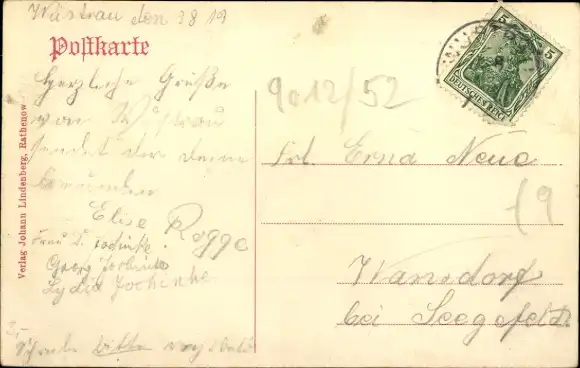 Wustrau den 3 8 19
Postkarte
Herzliche Grüße
von Wustrau
sendet dir deine
Elise Rogge
Frau
Georg Jochinke
Lydia Jochinke
bitte
Verlag Johann Lindenberg, Rathenow
5 5
DEUTSCHES REICH
9012/52
Frl. Erna Neue
19
Wansdorf
bei Seegefeld